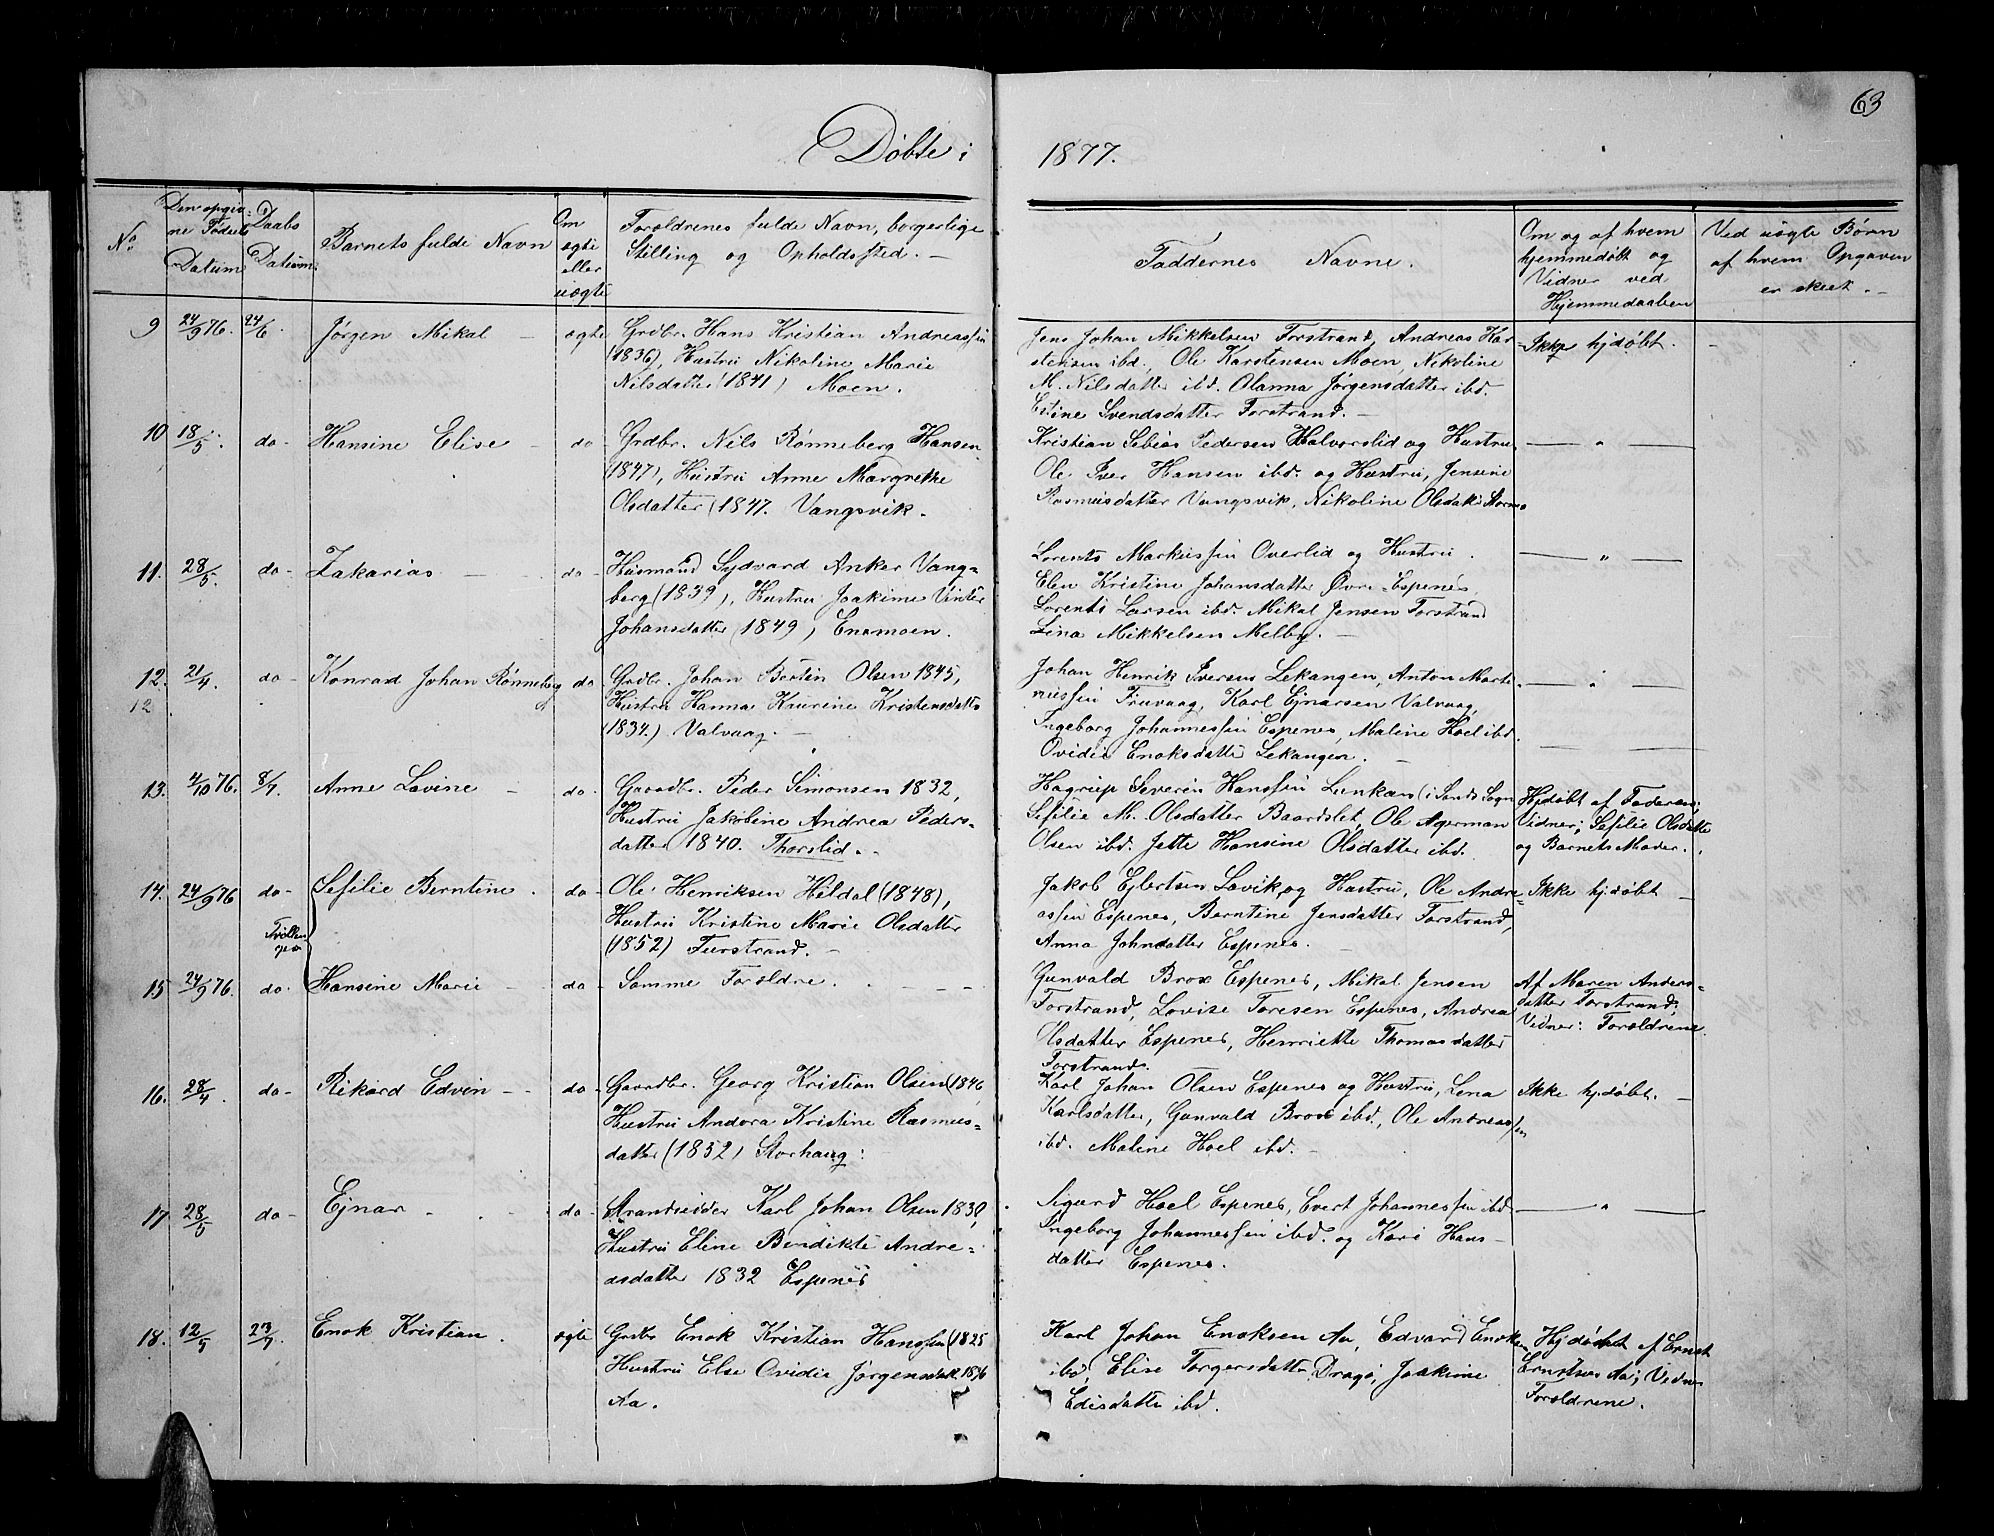 63
Døbte i 1877.
No
Den opgiv-
ne Fødsels
Datum
Daabs
Datum.
Barnets fulde Navn
Om
ægte
eller
uægte
Forældrenes fulde Navn, borgerlige
Stilling og Opholdssted. —
Faddernes Navne.
Om og af hvem
hjemmedøbt og
Vidner ved
Hjemmedaaben
Ved uægte Børn
af hvem Opgaven
er skeet. —
9 24/9 76. 24/6. Jørgen Mikal — ægte
Grdbr. Hans Kristian Andreassen
(1836), Hustru Nikoline Marie
Nilsdatter (1841) Moen.
Jens Johan Mikkelsen Forstrand, Andreas Kar-
stensen ibd., Ole Karstensen Moen, Nikoline
M. Nilsdatter ibd. Olanna Jørgensdatter ibd.
Estine Svendsdatter Forstrand. —
Ikke hjdøbt.
10 18/5. do - Hansine Elise — do -
Grdbr. Nils Rønneberg Hansen
(1847), Hustru Anne Margrethe
Olsdatter (1847. Vangsvik.
Kristian Sebias Pedersen Halvorslid og Hustru,
Ole Iver Hansen ibd. og Hustru, Jensine
Rasmusdatter Vangsvik, Nikoline Olsdatr
— " —
11. 28/5. do - Zakarias — do -
Husmand Sydvard Anker Vang-
berg (1839), Hustru Joakime Vinter
Johansdatter (1849) Enemoen.
Lorents Markussen Overlid og Hustru.
Elen Kristine Johansdatter Øvre-Espenes,
Lorents Larsen ibd. Mikal Jensen Forstrand
Lina Mikkelsen Melby. —
— " —
12. 21/4. do - Konrad Johan Rønneberg do
12
Grdbr. Johan Bertin Olsen 1845,
Hustru Hanna Kaurine Kristensdatter
(1834.) Valvaag. —
Johan Henrik Iversen Lekangen, Anton Marti-
nussen Fruvaag, Karl Ejnarsen Valvaag,
Ingeborg Johannessen Espenes, Maline Hoel ibd.
Ovidie Enoksdatter Lekangen. —
— " —
13. 4/10 76. 8/7. Anne Lovine — do.
Gaardbr. Peder Simonsen 1832,
Hustru Jakobine Andrea Peders-
datter 1840. Thorslid. -
Hagerup Severin Hanssen Lunkan (i Sands Sogn
Sefilie M. Olsdatter Baardslet, Ole Agerman
Olsen ibd. Jette Hansine Olsdatter ibd.
Hjdøbt af Faderen;
Vidner; Sefilie Olsdatter
og Barnets Moder.
14. 24/9 76 do - Sefilie Berntine. do -
Tvillin-
ger
Ole Henriksen Hildal (1848),
Hustru Kristine Marie Olsdatter
(1852) Furstrand. —
Jakob Ejlertsen Lovik og Hustru, Ole Andre-
assen Espenes, Berntine Jensdatter Forstrand,
Anna Johndatter Espenes. —
Ikke hjdøbt —
15 24/9 76. do. Hansine Marie — do -
Samme Forældre. - -
Gunvald Brox Espenes, Mikal Jensen
Forstrand, Lovise Toresen Espenes, Andrea
Olsdatter Espenes, Henriette Thomasdatter
Forstrand.
Af Maren Anders-
datter Forstrand;
Vidner: Forældrene.
16. 28/4. do - Rikard Edvin - - do -
Gaardbr. Georg Kristian Olsen (1846,
Hustru Andora Kristine Rasmus-
datter (1852) Storhaug:
Karl Johan Olsen Espenes og Hustru, Lena
Karlsdatter, Gunvald Brox ibd., Ole Andreassen
ibd. Maline Hoel ibd. —
Ikke hjdøbt. —
17 28/5 do - Ejnar - - do -
Strandsidder Karl Johan Olsen 1830,
Hustru Eline Bendikte Andre-
asdatter 1832 Espenes
Sigurd Hoel Espenes, Evert Johannessen ibd.
Ingeborg Johannessen ibd. og Kari Hans-
datter Espenes.
— " —
18. 12/5 23/7. Enok Kristian. ægte
Grdbr Enok Kristian Hanssen (1825
Hustru Else Ovidie Jørgensdatr
Aa.
Karl Johan Enoksen Aa, Edvard Enoksen
ibd, Elise Torgersdatter Dragø, Joakime
Edisdatter ibd.
Hjdøbt af Ernst
Ernstsen Aa; Vidner
Forældrene.